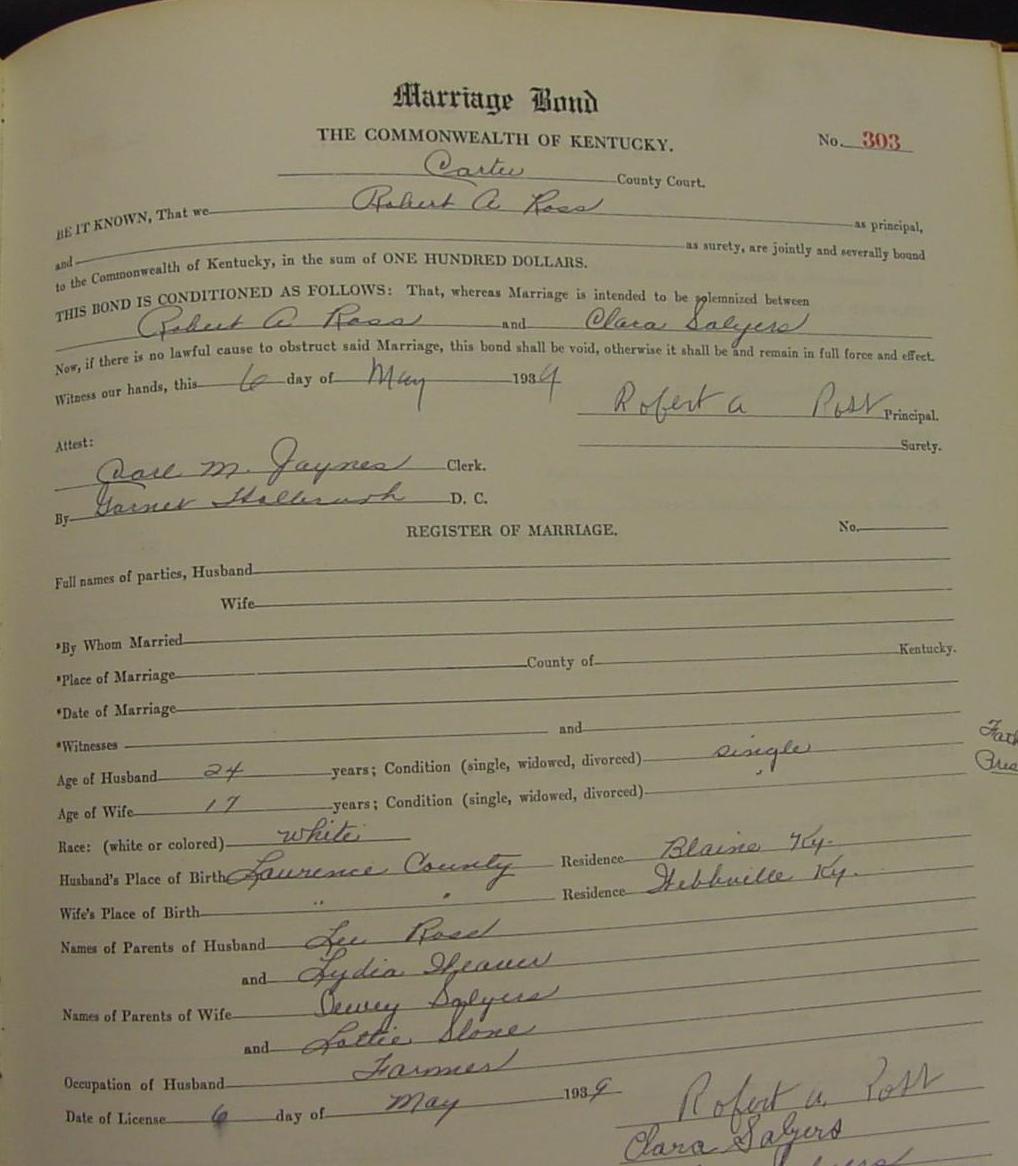 Marriage Bond
THE COMMONWEALTH OF KENTUCKY.
No. 303
Carter County Court.
BE IT KNOWN, That we Robert A Ross as principal,
and as surety, are jointly and severally bound
to the Commonwealth of Kentucky, in the sum of ONE HUNDRED DOLLARS.
THIS BOND IS CONDITIONED AS FOLLOWS: That, whereas Marriage is intended to be solemnized between
Robert A Ross and Clara Salyers
Now, if there is no lawful cause to obstruct said Marriage, this bond shall be void, otherwise it shall be and remain in full force and effect.
Witness our hands, this 6 day of May 1939
Robert a Ross Principal.
Attest: Surety.
Carl M. Jaynes Clerk.
By Garnet D. C.
REGISTER OF MARRIAGE. No.
Full names of parties, Husband
Wife
*By Whom Married
*Place of Marriage County of Kentucky.
*Date of Marriage
*Witnesses and
Age of Husband 24 years; Condition (single, widowed, divorced) single
Age of Wife 17 years; Condition (single, widowed, divorced) "
Race: (white or colored) white
Husband's Place of Birth Lawrence County Residence Blaine Ky.
Wife's Place of Birth " " Residence Webbville Ky.
Names of Parents of Husband Lee Ross
and Lydia
Names of Parents of Wife Dewey Salyers
and Lottie Slone
Occupation of Husband Farmer
Date of License 6 day of May 1939
Robert a. Ross
Clara Salyers